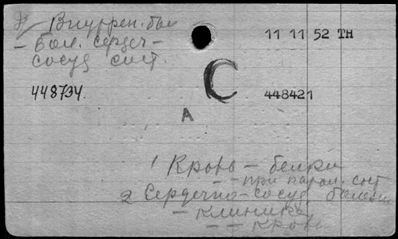 Внутрен. бол
11 11 52 TH
– Бол. сердеч-
сосуд сист.
C
448734.
448421
A
1 Кровь – белки
– – при парал. сист
2 Сердечно-сосуд. болезни
– клиника
– – кровь